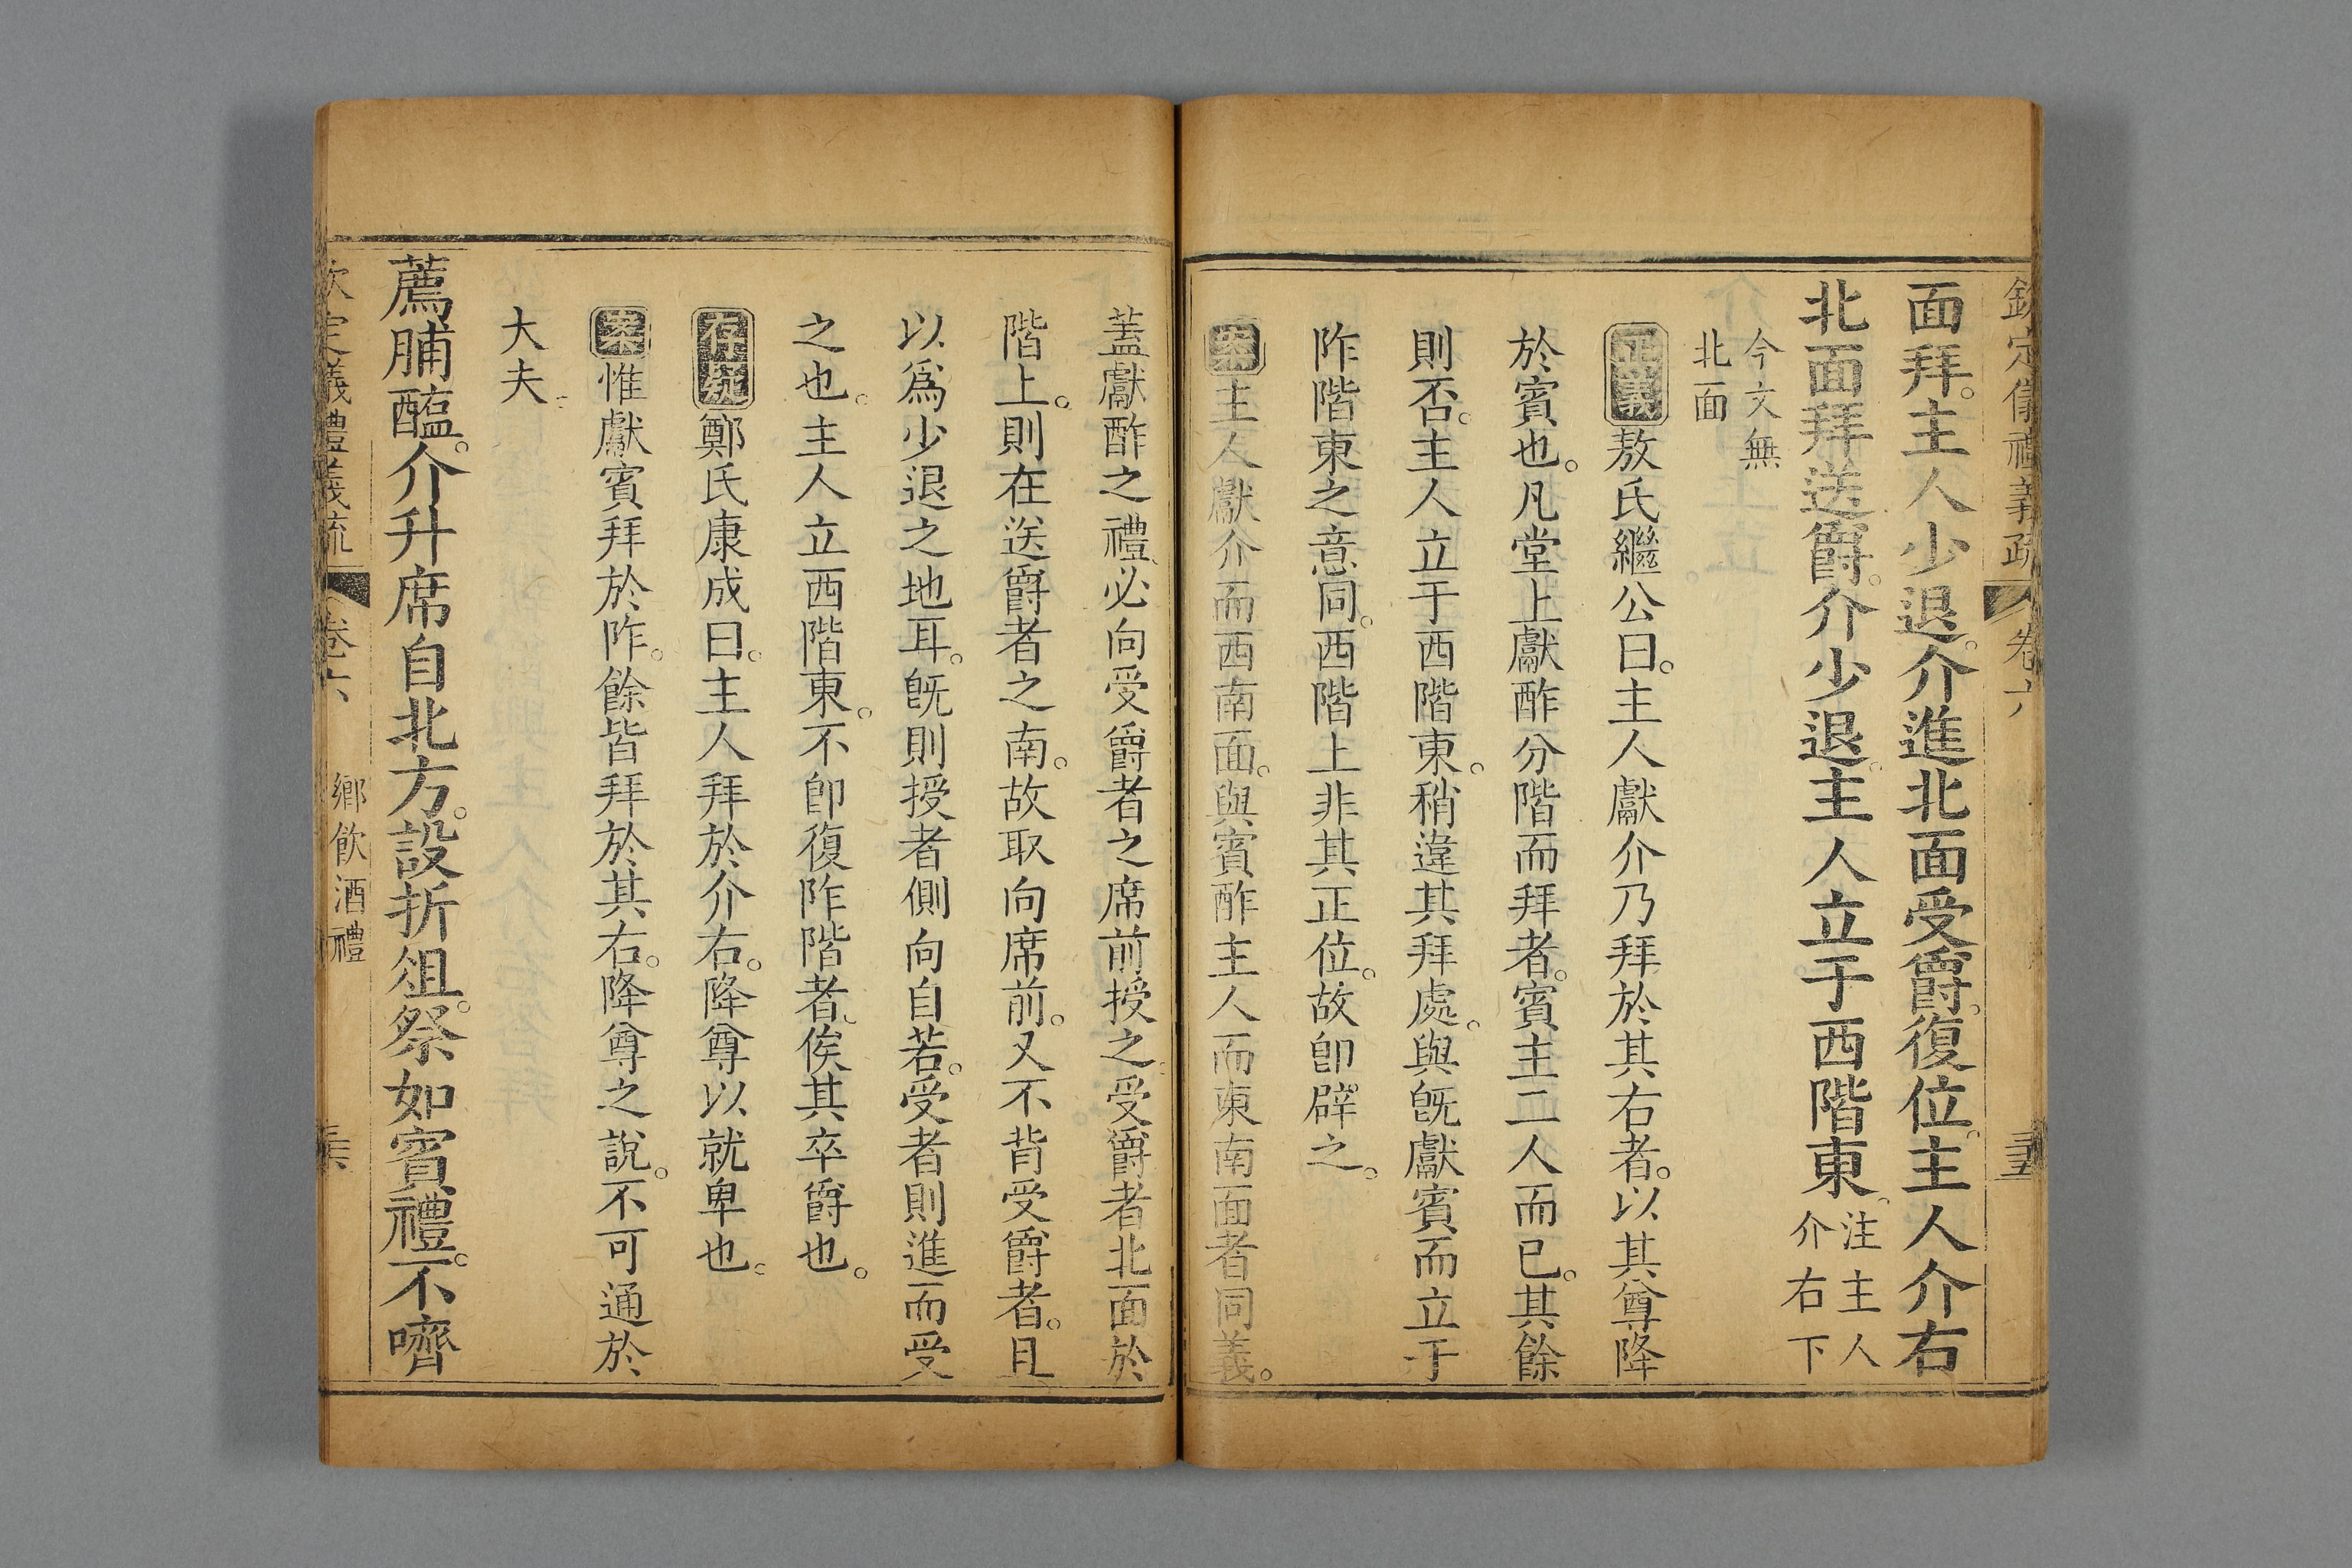 欽定儀禮義疏 卷六 三十五
面拜。主人少退。介進北面受爵。復位。主人介右
北面拜送爵。介少退。主人立于西階東。注主人介右下
今文無北面
正義敖氏繼公曰。主人獻介乃拜於其右者。以其尊降
於賓也。凡堂上獻酢分階而拜者。賓主二人而已。其餘
則否。主人立于西階東。稍違其拜處。與旣獻賓而立于
阼階東之意同。西階上非其正位。故卽辟之。
案主人獻介而西南面。與賓酢主人而東南面者同義。
蓋獻酢之禮、必向受爵者之席前授之。受爵者北面於
階上。則在送爵者之南。故取向席前。又不背受爵者。且
以爲少退之地耳。旣則授者側向自若。受者則進而受
之也。主人立西階東。不卽復阼階者、俟其卒爵也。
存疑鄭氏康成曰。主人拜於介右。降尊以就卑也。
案惟獻賓拜於阼。餘皆拜於其右。降尊之說。不可通於
大夫。
薦脯醢。介升席自北方。設折俎。祭如賓禮。不嚌
欽定儀禮義疏 卷六 鄉飲酒禮